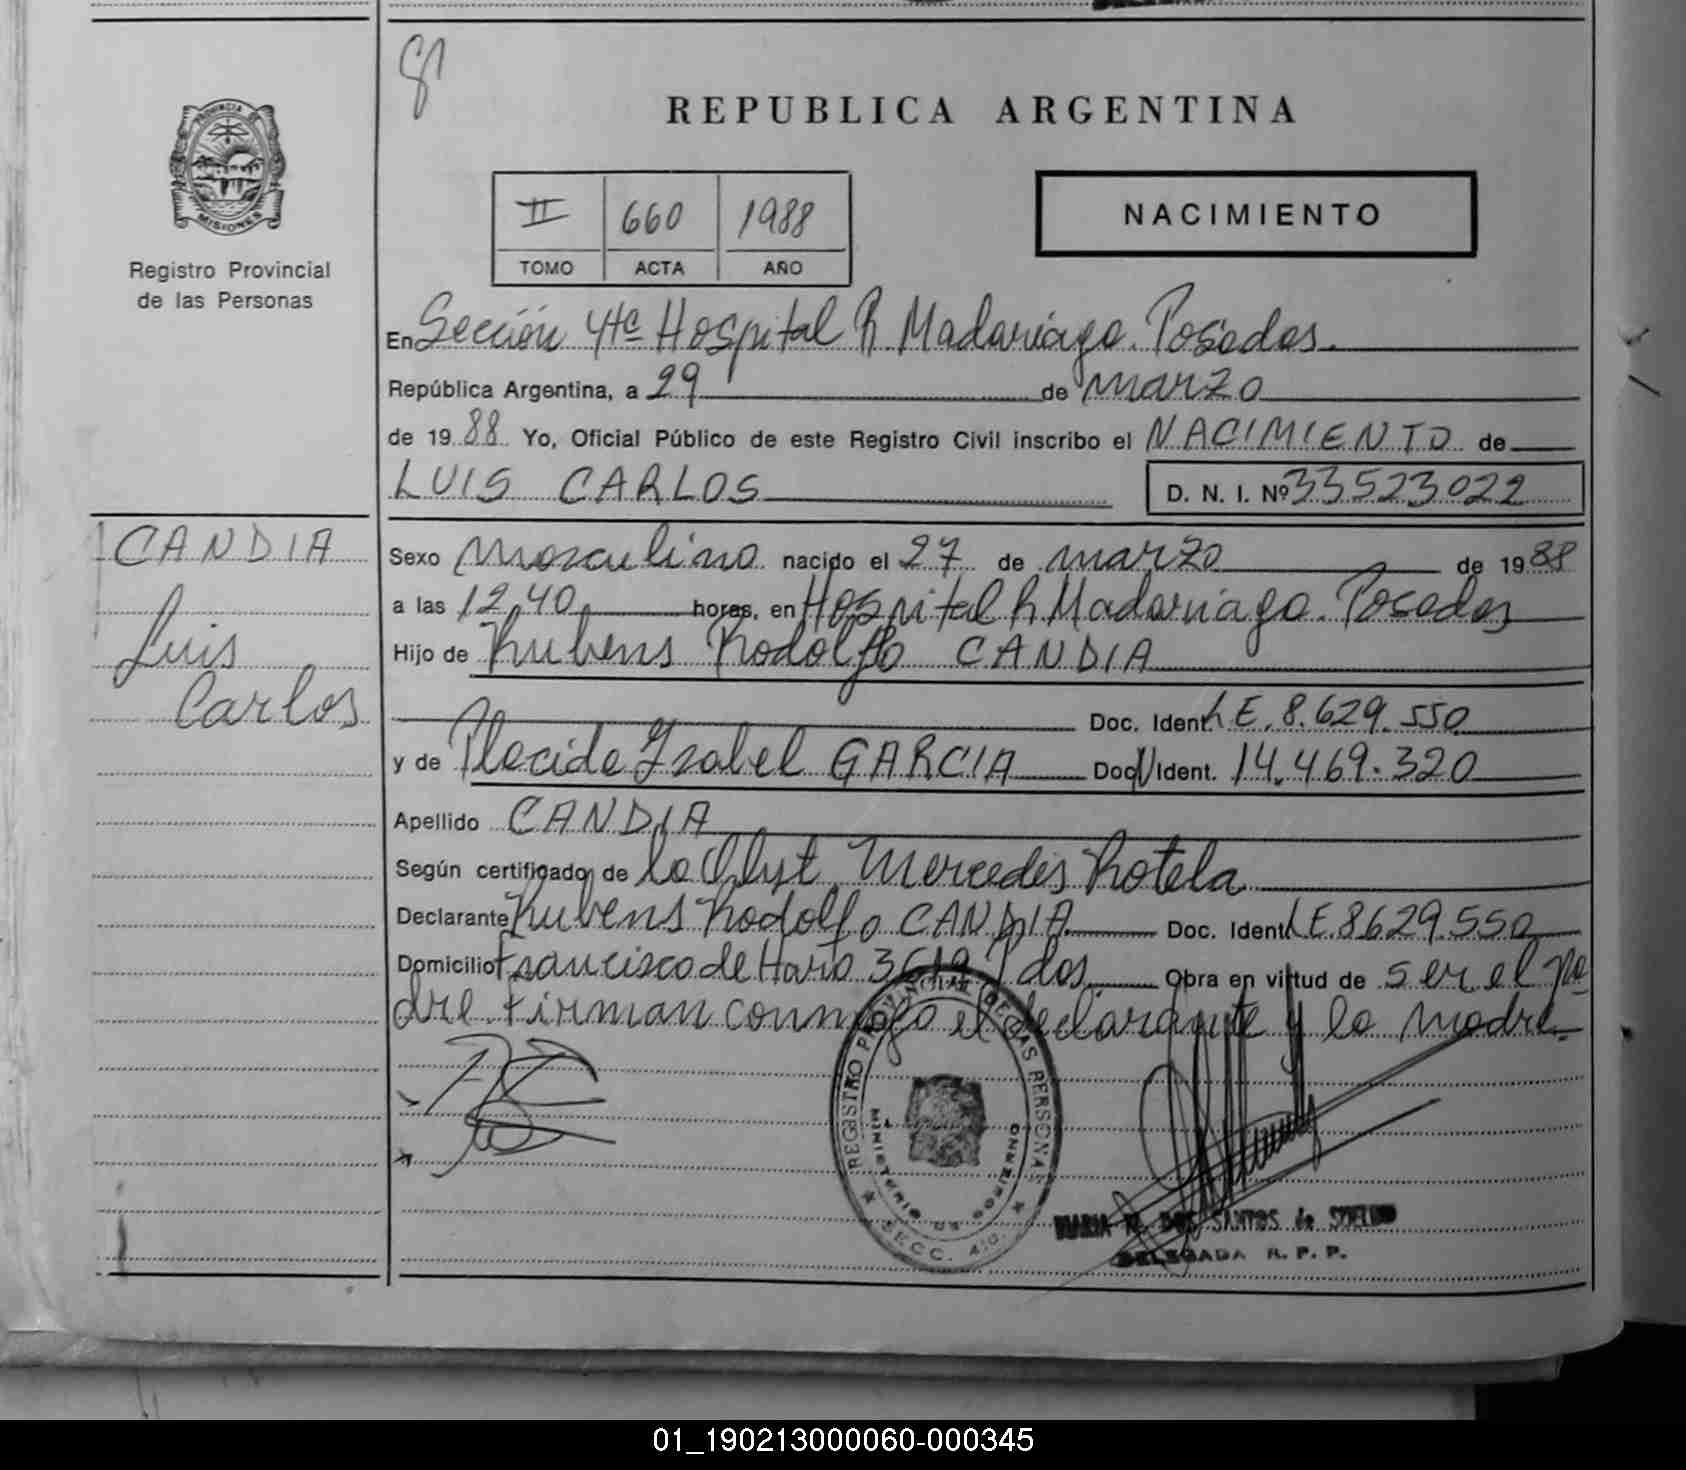 REPUBLICA ARGENTINA
PROVINCIA DE
MISIONES
Registro Provincial
de las Personas
II 660 1988
TOMO ACTA AÑO
NACIMIENTO
En Sección 4ta Hospital R Madariaga. Posadas.
República Argentina, a 29 de marzo
de 1988 Yo, Oficial Público de este Registro Civil inscribo el NACIMIENTO de
LUIS CARLOS D. N. I. Nº 33523022
CANDIA
Luis
Carlos
Sexo Masculino nacido el 27 de marzo de 1988
a las 12,40 horas, en Hospital R Madariaga. Posadas
Hijo de Rubens Rodolfo CANDIA
Doc. Ident. LE. 8.629.550
y de Placida Isabel GARCIA Doc. Ident. 14.469.320
Apellido CANDIA
Según certificado de la Obst Mercedes Rotela
Declarante Rubens Rodolfo CANDIA Doc. Ident. LE 8629.550
Domicilio Francisco de Haro 3619 Pdas Obra en virtud de ser el pa
dre. Firman conmigo el declarante y la madre.
REGISTRO PROVINCIAL DE LAS PERSONAS
MINISTERIO DE GOBIERNO
SECC. 4ta.
MARIA DOS SANTOS de
DELEGADA R. P. P.
01_190213000060-000345